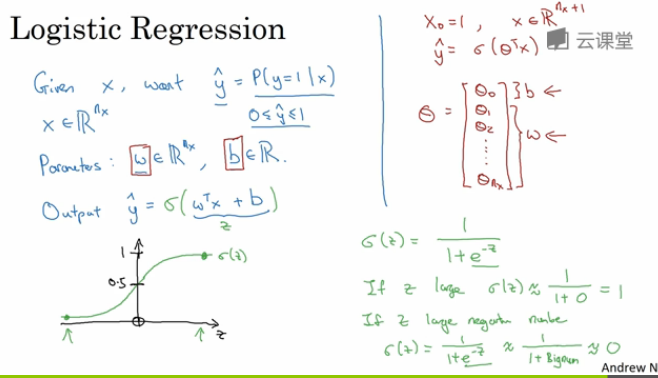 Logistic Regression
Given x, want ŷ = P(y=1|x)
x ∈ ℝ^{n_x}
0 ≤ ŷ ≤ 1
Parameters: w ∈ ℝ^{n_x}, b ∈ ℝ.
Output ŷ = σ(w^T x + b)
z
1
σ(z)
0.5
0
z
x_0 = 1, x ∈ ℝ^{n_x+1}
ŷ = σ(θ^T x)
云课堂
θ = [θ_0 θ_1 θ_2 ⋮ θ_{n_x}] } b ←
} w ←
σ(z) = 1/(1+e^{-z})
If z large σ(z) ≈ 1/(1+0) = 1
If z large negative number
σ(z) = 1/(1+e^{-z}) ≈ 1/(1+Bignum) ≈ 0
Andrew N